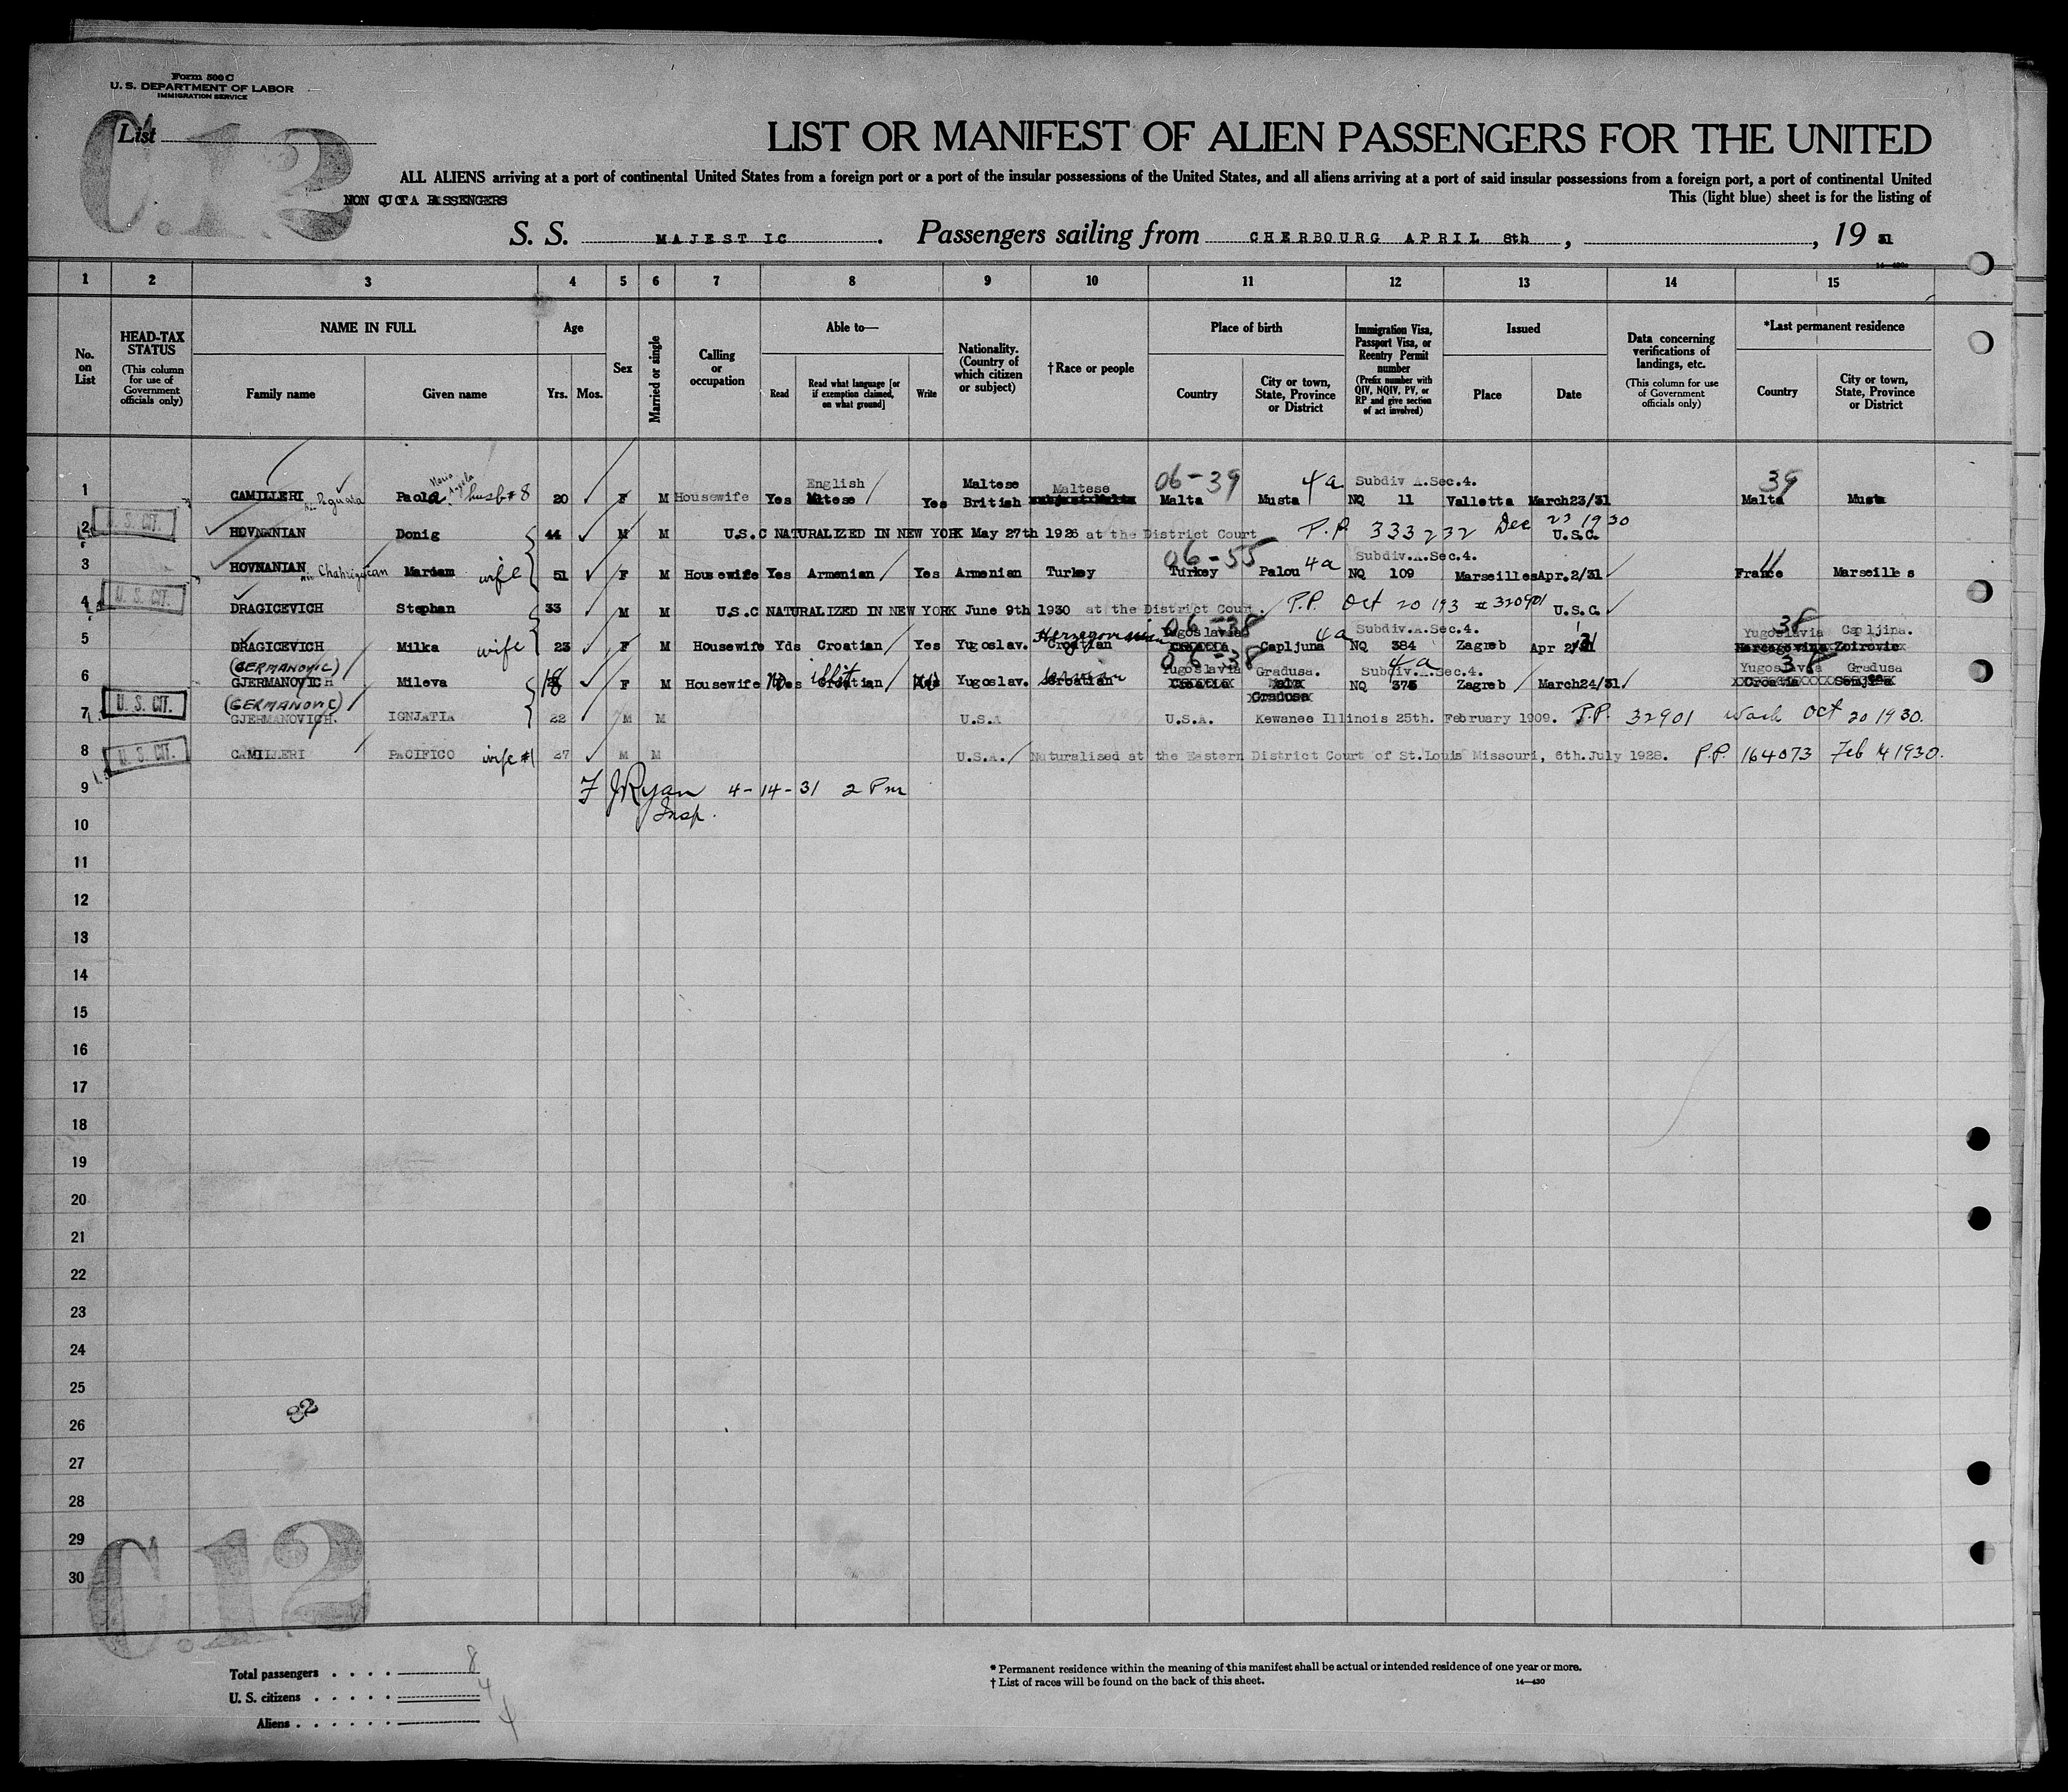 Form 500 C
U. S. DEPARTMENT OF LABOR
IMMIGRATION SERVICE
C.12
List
LIST OR MANIFEST OF ALIEN PASSENGERS FOR THE UNITED
ALL ALIENS arriving at a port of continental United States from a foreign port or a port of the insular possessions of the United States, and all aliens arriving at a port of said insular possessions from a foreign port, a port of continental United
NON QUOTA PASSENGERS
This (light blue) sheet is for the listing of
S. S. MAJESTIC. Passengers sailing from CHERBOURG APRIL 8th, , 19 31
14—430
1 2 3 4 5 6 7 8 9 10 11 12 13 14 15
No. on List
HEAD-TAX STATUS (This column for use of Government officials only)
NAME IN FULL
Family name Given name
Age
Yrs. Mos.
Sex
Married or single
Calling or occupation
Able to—
Read Read what language [or if exemption claimed, on what ground] Write
Nationality. (Country of which citizen or subject)
† Race or people
Place of birth
Country City or town, State, Province or District
Immigration Visa, Passport Visa, or Reentry Permit number (Prefix number with QIV, NQIV, PV, or RP and give section of act involved)
Issued
Place Date
Data concerning verifications of landings, etc. (This column for use of Government officials only)
*Last permanent residence
Country City or town, State, Province or District
Maria Angela English Maltese Maltese 06-39 4a Subdiv A.Sec.4. 39
1 CAMILLERI Paola husb # 8 20 F M Housewife Yes Yes British Malta Musta NQ 11 Valletta March23/31 Malta Musta
2 U. S. CIT. HOVNANIAN Donig 44 M M U.S.C NATURALIZED IN NEW YORK May 27th 1926 at the District Court P.P. 333232 Dec 23 1930 U.S.C.
06-55 4a Subdiv.A.Sec.4.
3 HOVNANIAN Mariam wife 51 F M Housewife Yes Armenian Yes Armenian Turkey Turkey Palou NQ 109 Marseilles Apr.2/31 France Marseilles
4 U. S. CIT. DRAGICEVICH Stephan 33 M M U.S.C NATURALIZED IN NEW YORK June 9th 1930 at the District Court. P.P. Oct 20 193 # 320901 U.S.C.
Herzegovinian 06-38 Yugoslavia 4a Subdiv.A.Sec.4. 38 Yugoslavia Capljina.
5 DRAGICEVICH Milka wife 23 F M Housewife Yds Croatian Yes Yugoslav. Croatian Croatia Capljuna NQ 384 Zagreb Apr 2/31 Hercegovina Zoirovic
(GERMANOVIC) 06-38 Yugoslavia Gradusa. 4a Subdiv.A.Sec.4. 38 Yugoslavia Gradusa
6 GJERMANOVICH Mileva 18 F M Housewife No illit Croatian No Yugoslav. Croatian Croatia NQ 375 Zagreb March24/31. Croatia
Gradusa
(GERMANOVIC)
7 U. S. CIT. GJERMANOVICH. IGNJATIA 22 M M U.S.A U.S.A. Kewanee Illinois 25th. February 1909. P.P. 32901 Wash Oct 20 1930.
8 U. S. CIT. CAMILLERI PACIFICO wife #1 27 M M U.S.A. Naturalised at the Eastern District Court of St.Louis Missouri, 6th.July 1928. P.P. 164073 Feb 4 1930.
9 F J Ryan 4-14-31 2 Pm
Insp.
10
11
12
13
14
15
16
17
18
19
20
21
22
23
24
25
26
27
28
29
30
C.12
Total passengers . . . . 8
U. S. citizens . . . . . 4
Aliens . . . . . . 4
* Permanent residence within the meaning of this manifest shall be actual or intended residence of one year or more.
† List of races will be found on the back of this sheet.
14—430